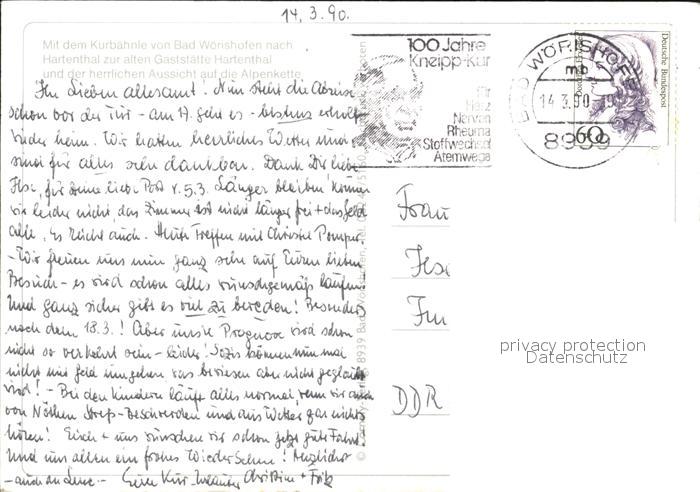 14.3.90.
Mit dem Kurbähnle von Bad Wörishofen nach
Hartenthal zur alten Gaststätte Hartenthal
und der herrlichen Aussicht auf die Alpenkette
100 Jahre
Kneipp-Kur
für
Herz
Nerven
Rheuma
Stoffwechsel
Atemwege
BAD WÖRISHOFEN
mb
14.3.90
8939
60
Deutsche Bundespost
Ihr Lieben allesamt! Nun steht die Abreise
schon vor der Tür - am 17. geht es - bestens erholt
wieder heim. Wir hatten herrliches Wetter und
sind für alles sehr dankbar. Dank Dir liebe
Ilse, für Deine liebe Post v. 5.3. Länger bleiben können
wir leider nicht, das Zimmer ist nicht länger frei + das Geld
alle. Es reicht auch. Heute Treffen mit Christel
- Wir freuen uns nun ganz sehr auf Euren lieben
Besuch - es wird schon alles wunschgemäß laufen!
Und ganz sicher gibt es viel zu bereden! Besonders
nach dem 18.3.! Aber uns're Prognose wird schon
nicht so verkehrt sein - leider! Sozis können nun mal
nicht mit Geld umgehen was bewiesen aber nicht geglaubt
wird! - Bei den Kindern läuft alles normal, wenn wir auch
von Nöthen Streß-Beschwerden und aus Wetter gar nichts
hören! Euch + uns wünschen wir schon jetzt gute Fahrt!
Und uns allen ein frohes Wiedersehn! Herzlichst
- auch an Lene - Eure Kur- Christine + Fritz
Frau
Ilse
DDR
privacy protection
Datenschutz